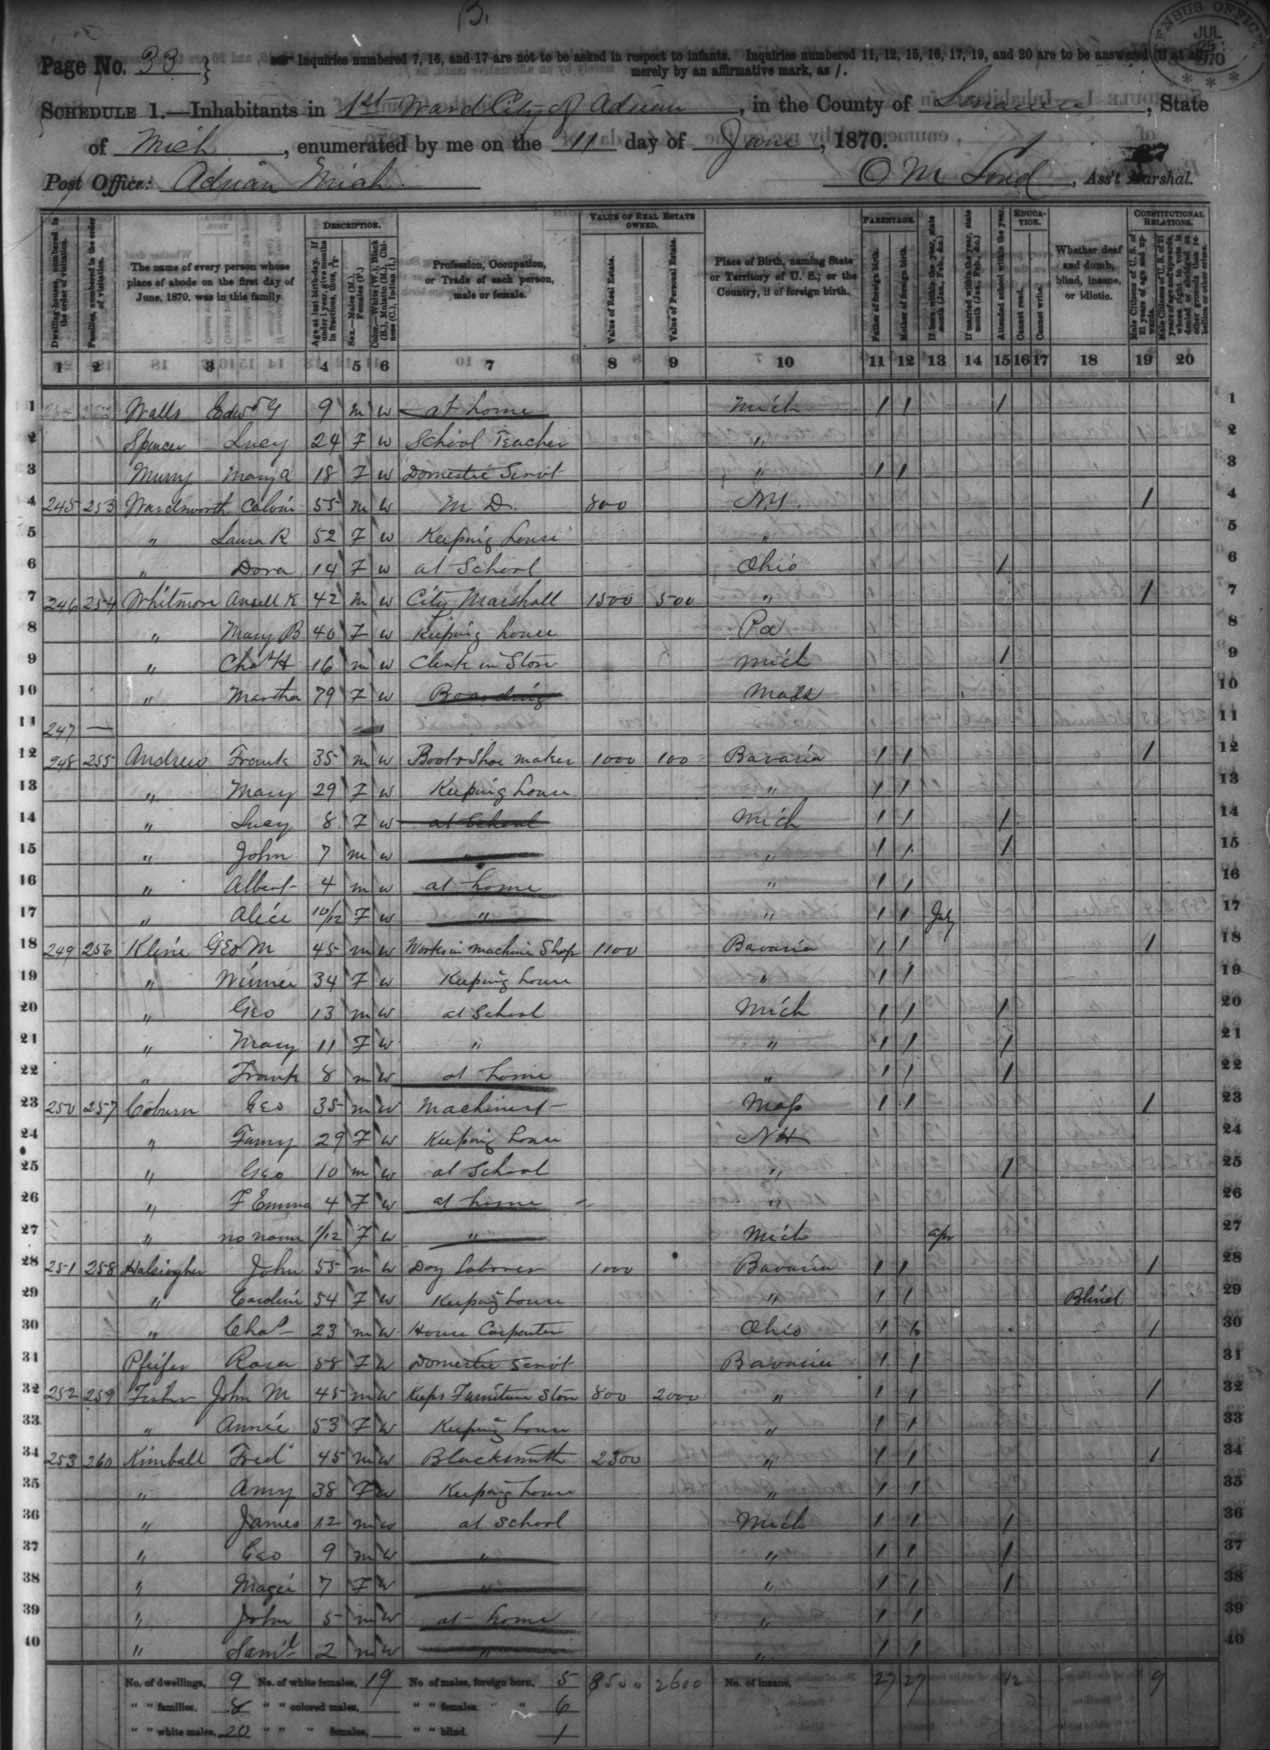 13.
CENSUS OFFICE JUL 25 1870
Page No. 33 } Inquiries numbered 7, 16, and 17 are not to be asked in respect to infants. Inquiries numbered 11, 12, 15, 16, 17, 19, and 20 are to be answered (if at all)
merely by an affirmative mark, as /.
SCHEDULE 1.—Inhabitants in 1st Ward City of Adrian, in the County of Lenawee, State
of Mich, enumerated by me on the 11 day of June, 1870.
27
Post Office: Adrian Mich. O M Lord, Ass't Marshal.
DESCRIPTION. VALUE OF REAL ESTATE OWNED. PARENTAGE. EDUCATION. CONSTITUTIONAL RELATIONS.
Dwelling-houses, numbered in the order of visitation.
Families, numbered in the order of visitation.
The name of every person whose place of abode on the first day of June, 1870, was in this family.
Age at last birth-day. If under 1 year, give months in fractions, thus, 3/12
Sex.—Males (M.), Females (F.)
Color.—White (W.), Black (B.), Mulatto (M.), Chinese (C.), Indian (I.)
Profession, Occupation, or Trade of each person, male or female.
Value of Real Estate.
Value of Personal Estate.
Place of Birth, naming State or Territory of U. S.; or the Country, if of foreign birth.
Father of foreign birth.
Mother of foreign birth.
If born within the year, state month (Jan., Feb., &c.)
If married within the year, state month (Jan., Feb., &c.)
Attended school within the year.
Cannot read.
Cannot write.
Whether deaf and dumb, blind, insane, or idiotic.
Male Citizens of U. S. of 21 years of age and upwards.
Male Citizens of U. S. of 21 years of age and upwards, whose right to vote is denied or abridged on other grounds than rebellion or other crime.
1 2 3 4 5 6 7 8 9 10 11 12 13 14 15 16 17 18 19 20
1 Walls Edwd G 9 m w at home Mich / / / 1
2 Spencer Lucy 24 F w School Teacher " 2
3 Murry Mary A 18 F w Domestic Servt " / / 3
4 245 253 Wardsworth Calvin 55 m w M D. 800 N.Y. / 4
5 " Laura R 52 F w Keeping house " 5
6 " Dora 14 F w at School Ohio / 6
7 246 254 Whitmore Ansell K 42 m w City Marshall 1500 500 " / 7
8 " Mary B 40 F w Keeping house Pa 8
9 " Chas H 16 m w Clerk in Store Mich / 9
10 " Martha 79 F w Boarding Mass 10
11 247 — 11
12 248 255 Andrew Frank 35 m w Boot & Shoe maker 1000 100 Bavaria / / / 12
13 " Mary 29 F w Keeping house " / / 13
14 " Lucy 8 F w at School Mich / / / 14
15 " John 7 m w " " / / / 15
16 " Albert 4 m w at home " / / 16
17 " Alice 10/12 F w " " / / July 17
18 249 256 Kline Geo M 45 m w Works in Machine Shop 1100 Bavaria / / / 18
19 " Winnie 34 F w Keeping house " / / 19
20 " Geo 13 m w at School Mich / / / 20
21 " Mary 11 F w " " / / / 21
22 " Frank 8 m w at home " / / / 22
23 250 257 Coburn Geo 35 m w Machinest Mass / / / 23
24 " Fanny 29 F w Keeping house NH 24
25 " Geo 10 m w at School " / 25
26 " F Emma 4 F w at home " 26
27 " no name 1/12 F w " Mich apr 27
28 251 258 John 55 m w Day Laborer 1000 Bavaria / / / 28
29 " Caroline 54 F w Keeping house " / / Blind 29
30 " Chas 23 m w House Carpenter Ohio / / / 30
31 Phifer Rosa 58 F w Domestic Servt Bavaria / / 31
32 252 259 Fisher John M 45 m w Keeps Furniture Store 800 2000 " / / / 32
33 " Annie 53 F w Keeping house " / / 33
34 253 260 Kimball Fred 45 m w Blacksmith 2300 " / / / 34
35 " Amy 38 F w Keeping house " / / 35
36 " James 12 m w at School Mich / / / 36
37 " Geo 9 m w " " / / / 37
38 " Magie 7 F w " " / / / 38
39 " John 5 m w at home " / / 39
40 " Saml 2 m w " " / / 40
No. of dwellings, 9 No. of white females, 19 No. of males, foreign born, 5 8500 2600 No. of insane, 27 27 12 9
" " families, 8 " " colored males, " " females " " 6
" " white males, 20 " " " females, " " blind. 1